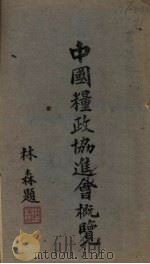 中國糧政協進會概覽
林森題